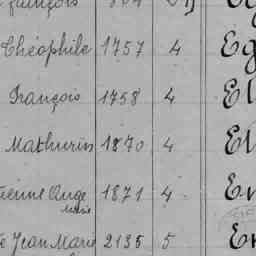 françois
Théophile 1757 4 Eg
François 1758 4 El
Mathurin 1870 4 El
ienne Ange 1871 4 En
Marie
Jean Marie 2135 5 En